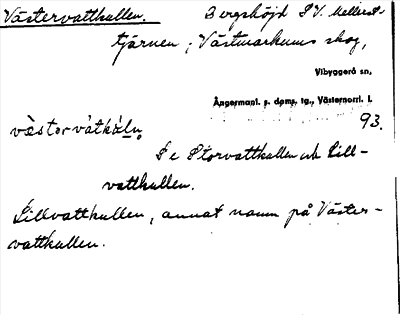 Västervattkullen. Bergshöjd S.V. Mellerst-
tjärnen; Västmarkums skog,
Vibyggerå sn,
Ångermanl. s. doms. tg., Västernorrl. l.
93.
Se Storvattkullen och Lill-
vattkullen.
Lillvattkullen, annat namn på Väster-
vattkullen.